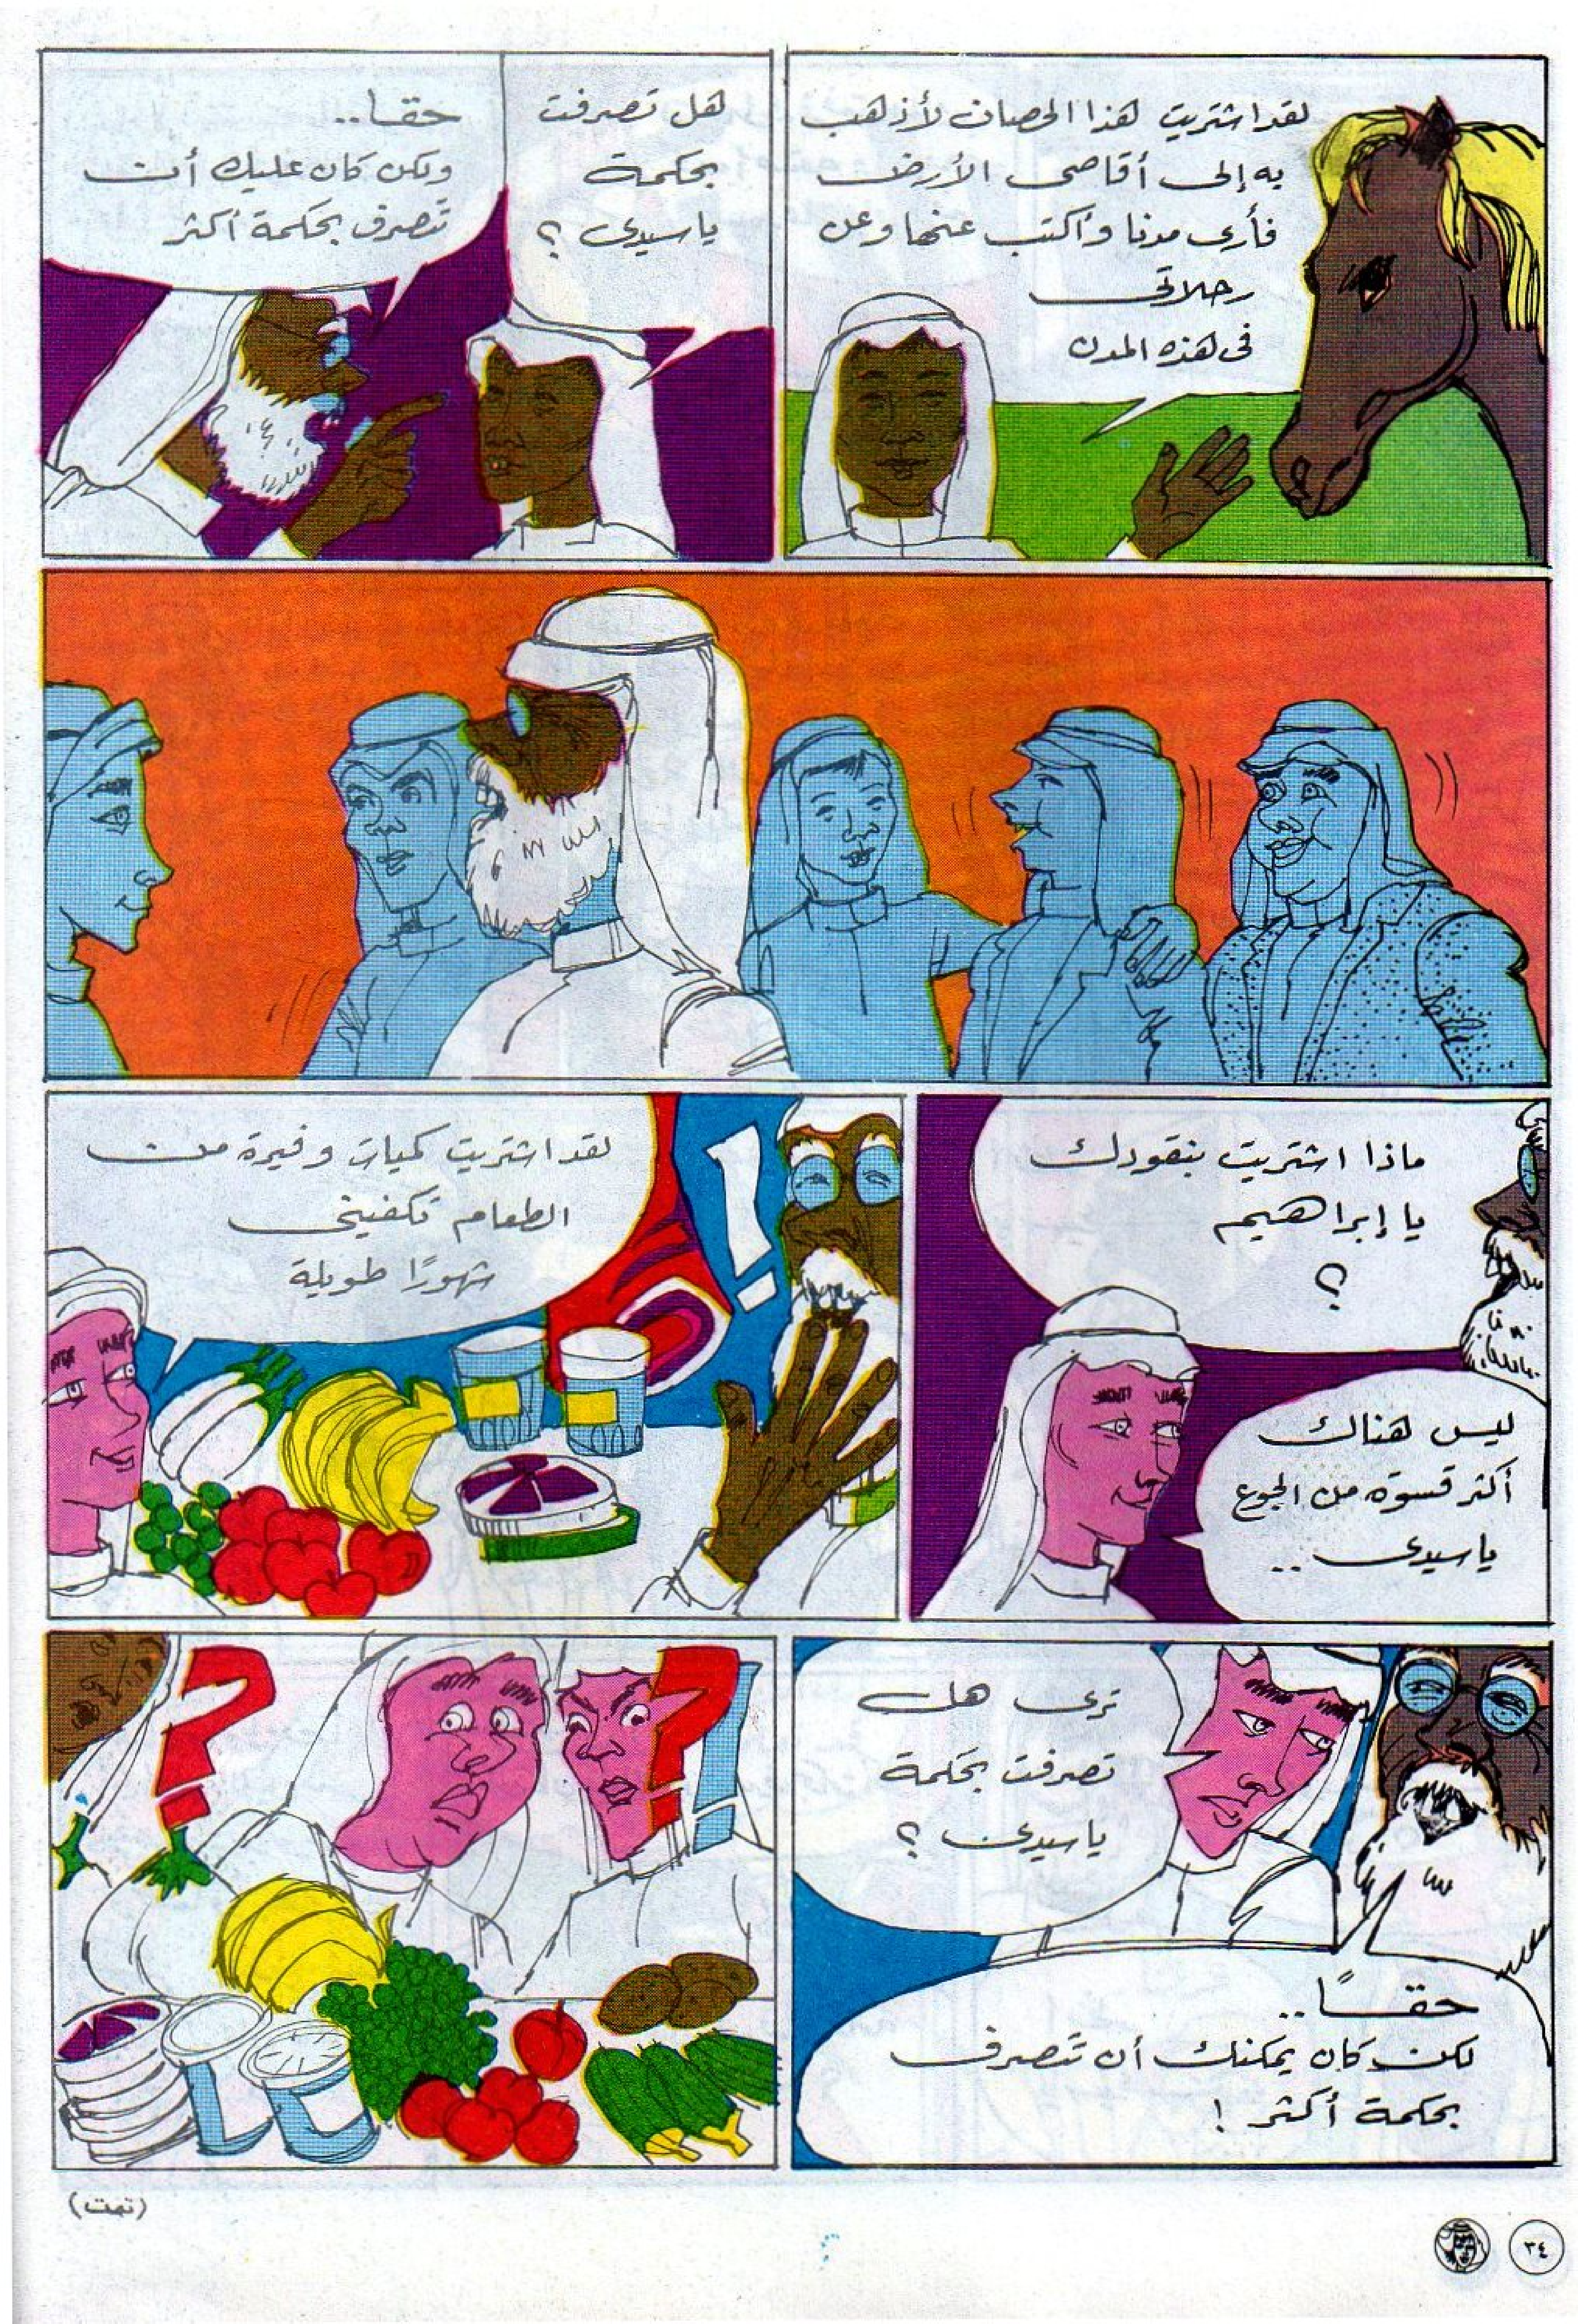 لقد اشتريت هذا الحصان لأذهب
به إلى أقاصى الأرض
فأرى مدنا وأكتب عنها وعن
رحلاتى
فى هذه المدن
هل تصرفت
بحكمة
ياسيدى ؟
حقا..
ولكن كان عليك أن
تصرف بحكمة أكثر
ماذا اشتريت بنقودك
يا إبراهيم
؟
ليس هناك
أكثر قسوة من الجوع
ياسيدى ..
لقد اشتريت كميات وفيرة من
الطعام تكفينى
شهورًا طويلة
!
ترى هل
تصرفت بحكمة
ياسيدى ؟
حقـًا..
لكن كان يمكنك أن تتصرف
بحكمة أكثر !
? ?!
(تمت)
٣٤